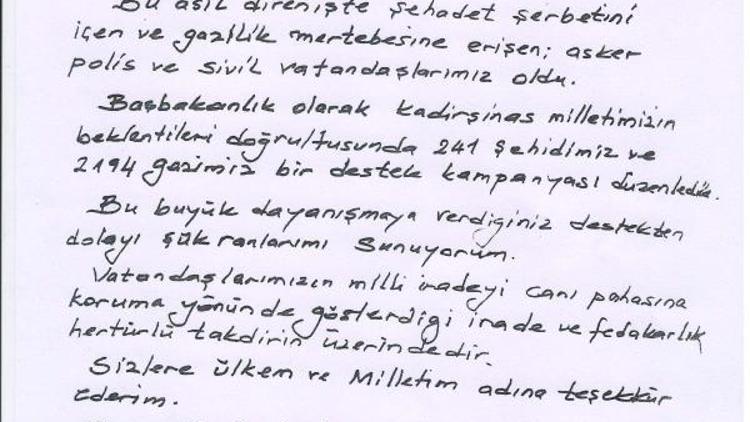 Bu asil direnişte şehadet şerbetini
içen ve gazilik mertebesine erişen; asker
polis ve sivil vatandaşlarımız oldu.
Başbakanlık olarak kadirşinas milletimizin
beklentileri doğrultusunda 241 şehidimiz ve
2194 gazimiz bir destek kampanyası düzenledik.
Bu büyük dayanışmaya verdiginiz destekten
dolayı şükranlarımı sunuyorum.
Vatandaşlarımızın milli iradeyi canı pahasına
koruma yönünde gösterdigi irade ve fedakarlık
hertürlü takdirin üzerindedir.
Sizlere ülkem ve Milletim adına teşekkür
ederim.